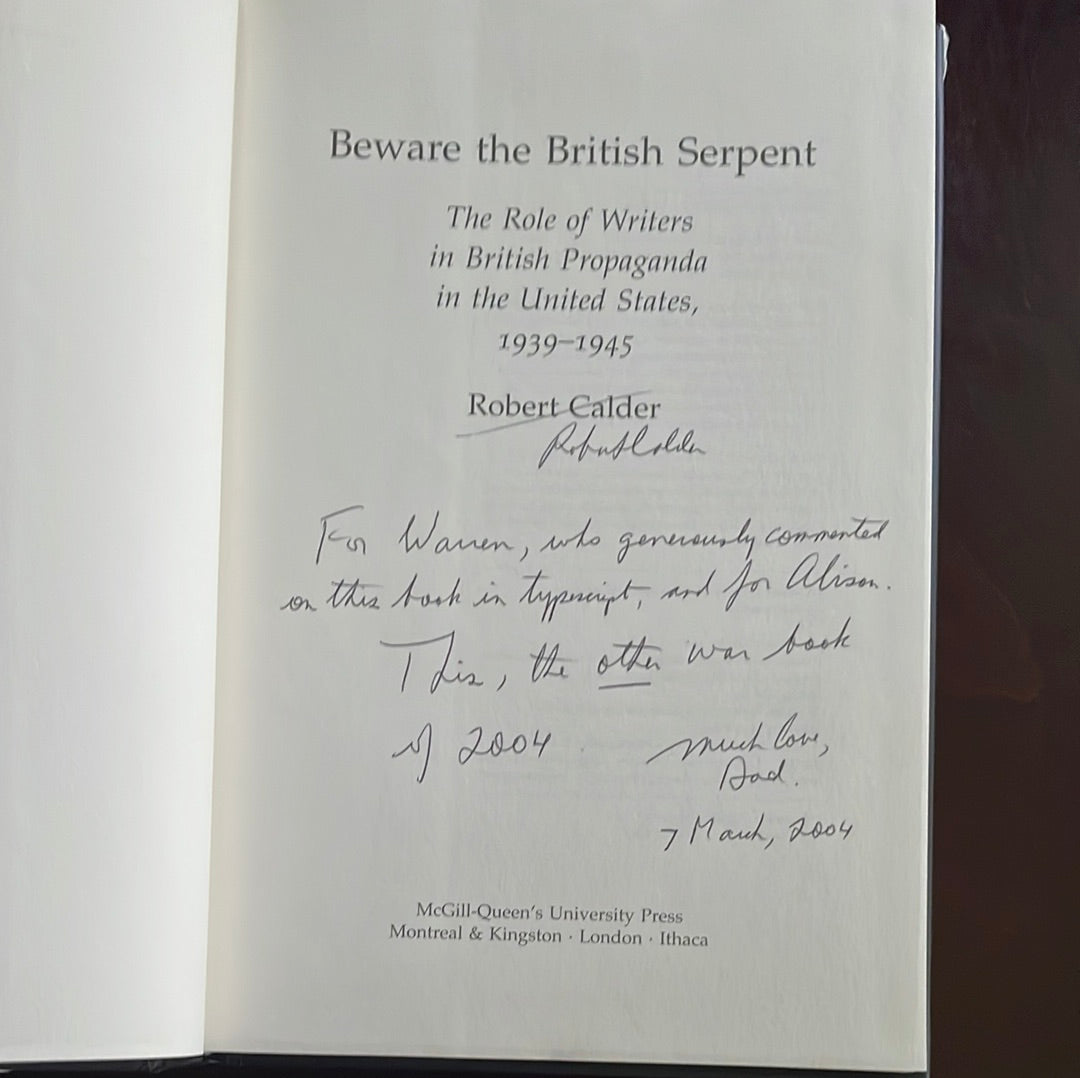 Beware the British Serpent
The Role of Writers
in British Propaganda
in the United States,
1939–1945
Robert Calder
Robert Calder
For Warren, who generously commented
on this book in typescript, and for Alison.
This, the other war book
of 2004
much love,
Dad.
7 March, 2004
McGill-Queen's University Press
Montreal & Kingston · London · Ithaca